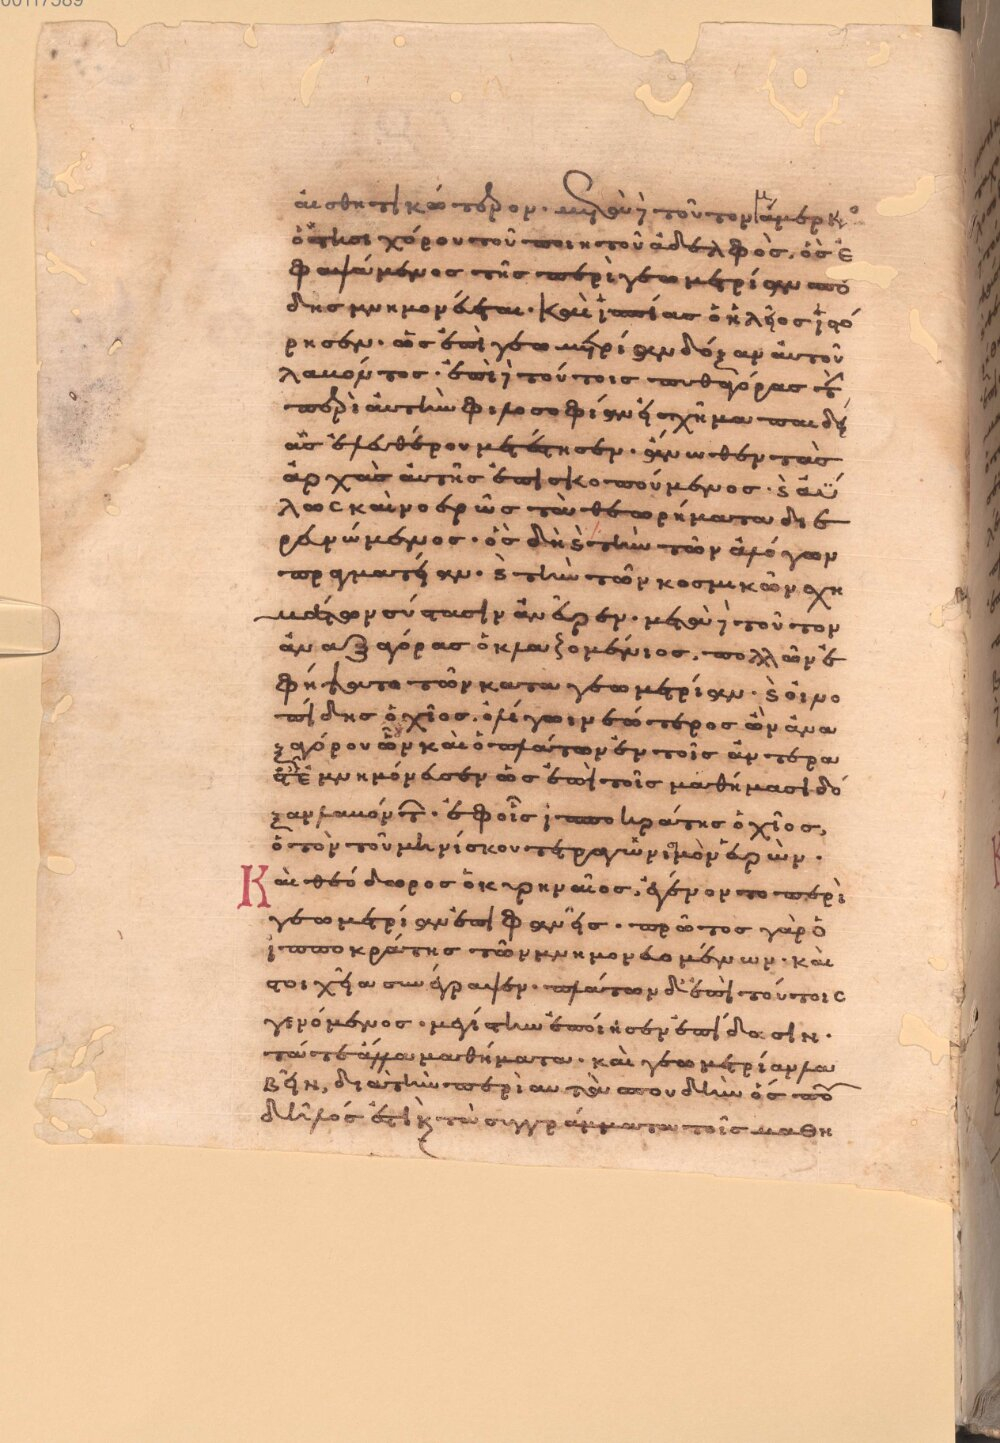 αἰσθητικώτερον. μετὰ δὲ τοῦτον μάμερκος
ὁ στησιχόρου τοῦ ποιητοῦ ἀδελφὸς, ὃς ἐ
φαψάμενος τῆς περὶ γεωμετρίαν σπου
δῆς μνημονεύεται. Καὶ ἱππίας ὁ ἠλεῖος ἱστό
ρησεν. ὡς ἐπὶ γεωμετρίαν δόξαν αὐτοῦ
λαβόντος. ἐπὶ δὲ τούτοις πυθαγόρας τὴν
περὶ αὐτὴν φιλοσοφίαν εἰς σχῆμα παιδεί
ας ἐλευθέρου μετέστησεν. ἄνωθεν τὰς
ἀρχὰς αὐτῆς ἐπισκοπούμενος. καὶ ἀΰ
λως καὶ νοερῶς τὰ θεωρήματα διε
ρευνώμενος. ὃς δὴ καὶ τὴν τῶν ἀλόγων
πραγματείαν. καὶ τὴν τῶν κοσμικῶν σχη
μάτων σύστασιν ἀνεῦρεν. μετὰ δὲ τοῦτον
ἀναξαγόρας ὁ κλαζομένιος, πολλῶν ἐ
φήψατο τῶν κατὰ γεωμετρίαν. καὶ οἰνο
πίδης ὁ χῖος. ὀλίγω νεώτερος ὢν ἀνα
ξαγόρου ὧν καὶ ὁ πλάτων ἐν τοῖς ἀντερα
σταῖς ἐμνημόνευσεν ὡς ἐπὶ τοῖς μαθήμασι δό
ξαν λαβόντων. ἐφ οἷς ἱπποκράτης ὁ χῖος,
ὁ τὸν τοῦ μηνίσκου τετραγωνισμὸν εὑρὼν.
Καὶ θεόδωρος ὁ κυρηναῖος, ἐγένοντο περὶ
γεωμετρίαν ἐπιφανεῖς. πρῶτος γὰρ ὁ
ἱπποκράτης τῶν μνημονευομένων. καὶ
στοιχεῖα συνέγραψεν. πλάτων δ' ἐπὶ τούτοις
γενόμενος. μεγίστην ἐποίησεν ἐπίδοσιν.
τά τε ἄλλα μαθήματα. καὶ γεωμετρίαν λα
βεῖν, διὰ τὴν περὶ αυτὰ σπουδὴν ὃς που
δῆλός ἐστι καὶ τὰ συγγράμματα τοῖς μαθη